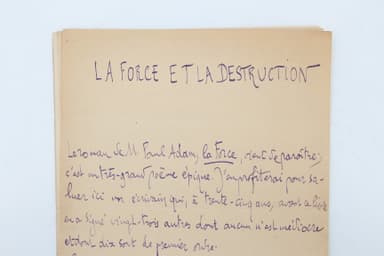 LA FORCE ET LA DESTRUCTION
Le roman de M. Paul Adam, la Force, vient de paraître;
c'est un très-grand poème épique. J'en profiterai pour sa-
luer ici un écrivain qui, à trente-cinq ans, avant ce livre
en a signé vingt-trois autres dont aucun n'est médiocre
et dont dix sont de premier ordre.